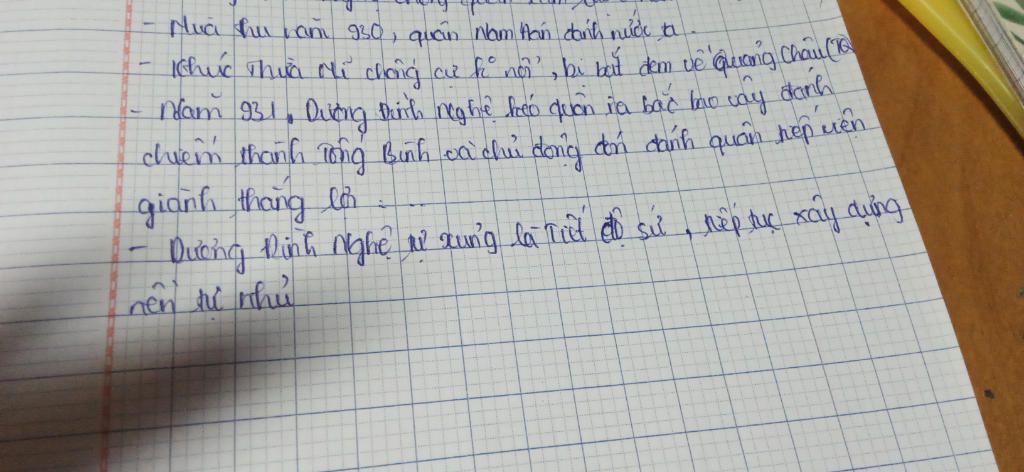 - Mùa thu năm 930, quân Nam Hán đánh nước ta.
- Khúc Thừa Mĩ chống cự k° nổi, bị bắt đem về Quảng Châu (TQ)
- Năm 931, Dương Đình Nghệ kéo quân ra bắc bao vây đánh
chiếm thành Tống Bình và chủ động đón đánh quân tiếp viện
giành thắng lợi.
- Dương Đình Nghệ tự xưng là Tiết độ sứ, tiếp tục xây dựng
nền tự chủ